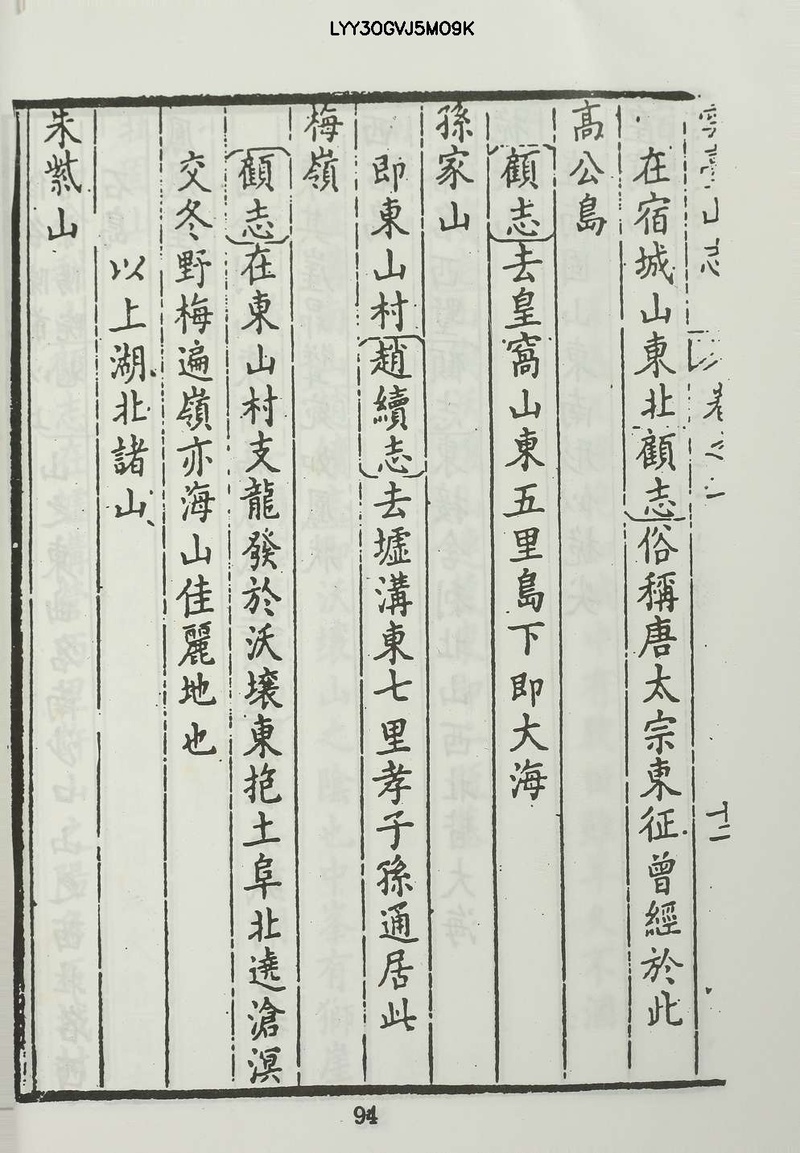 LYY30GVJ5M09K
雲臺山志 卷之二 十二
在宿城山東北顧志俗稱唐太宗東征曾經於此
高公島
顧志去皇窩山東五里島下即大海
孫家山
即東山村趙續志去墟溝東七里孝子孫通居此
梅嶺
顧志在東山村支龍發於沃壤東抱土阜北遶滄溟
交冬野梅遍嶺亦海山佳麗地也
以上湖北諸山
朱紫山
94